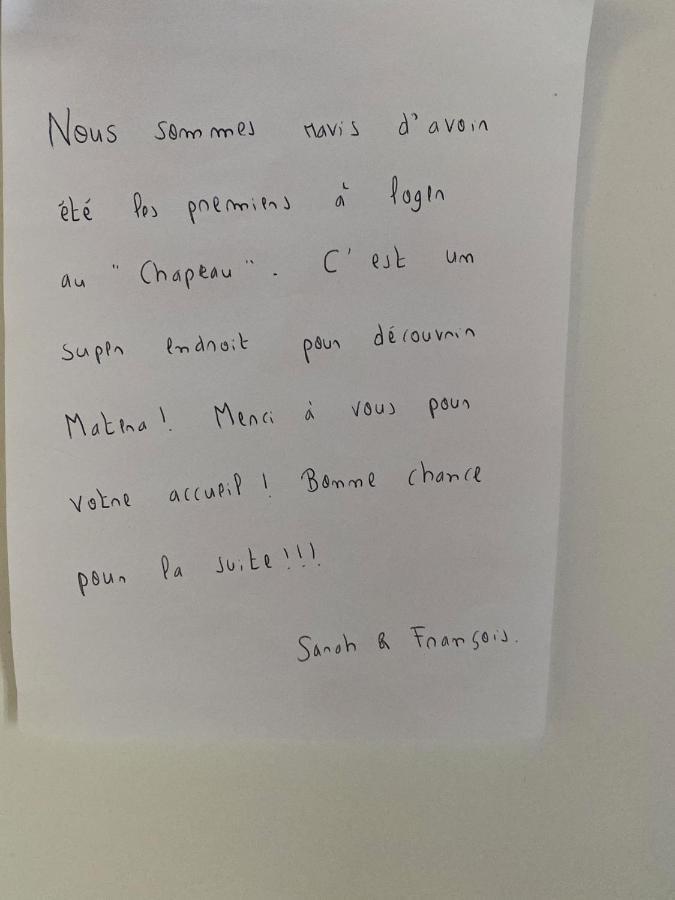 Nous sommes ravis d'avoir
été les premiers à loger
au "Chapeau". C'est un
super endroit pour découvrir
Matera! Merci à vous pour
votre accueil! Bonne chance
pour la suite!!!
Sarah & François.